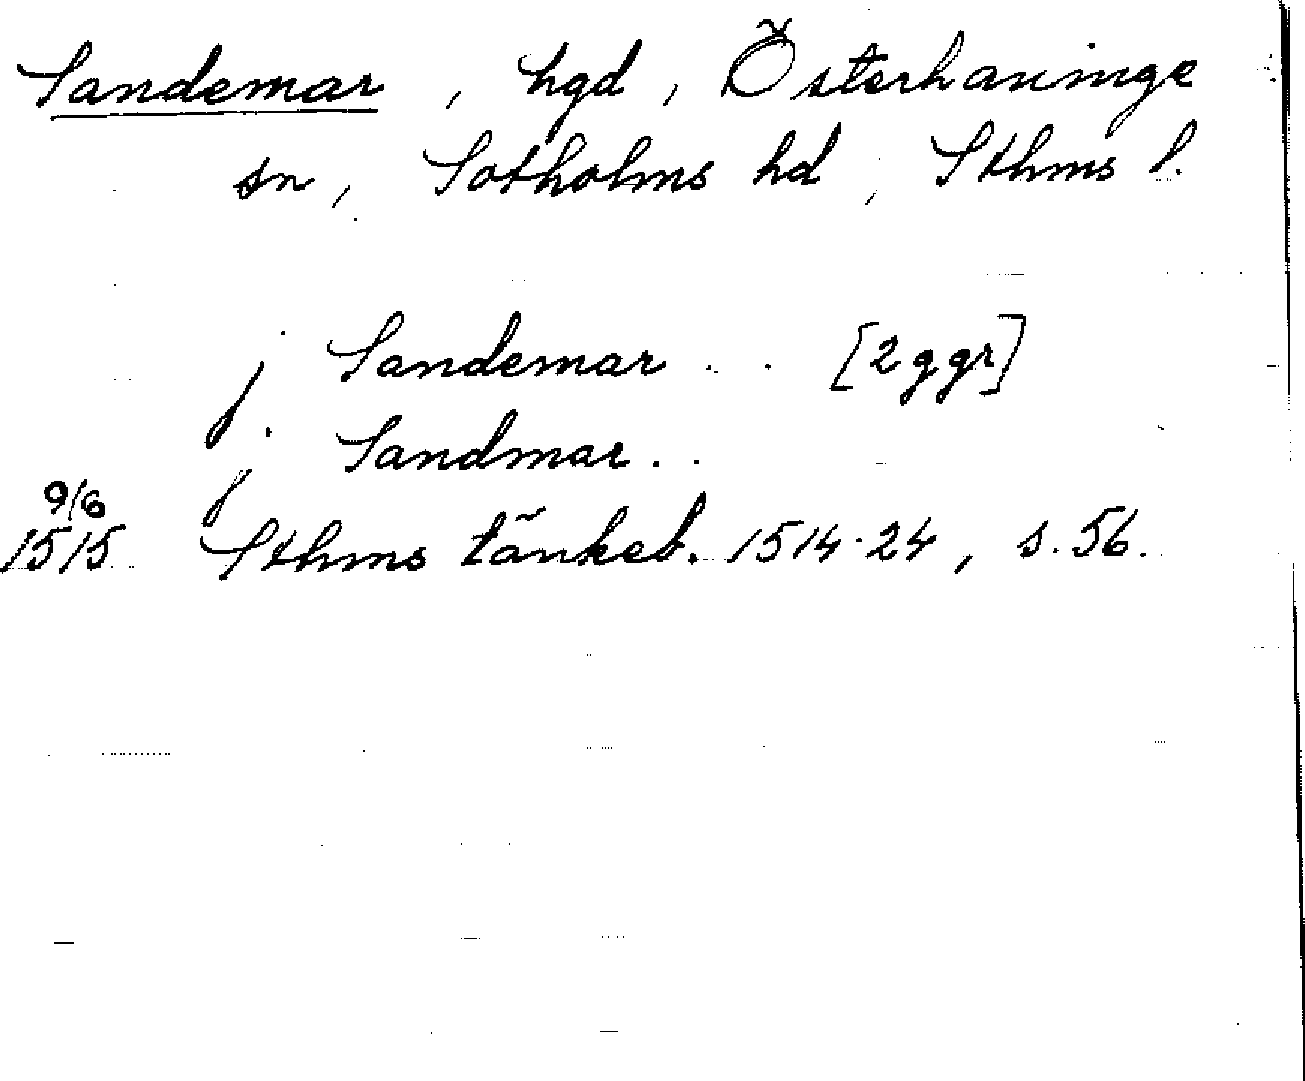 Sandemar, hgd, Österhaninge
sn, Sotholms hd, Sthms l.
j Sandemar .. [2 ggr]
j Sandmar ..
9/6
1515 Sthms tänkeb. 1514-24, s. 56.